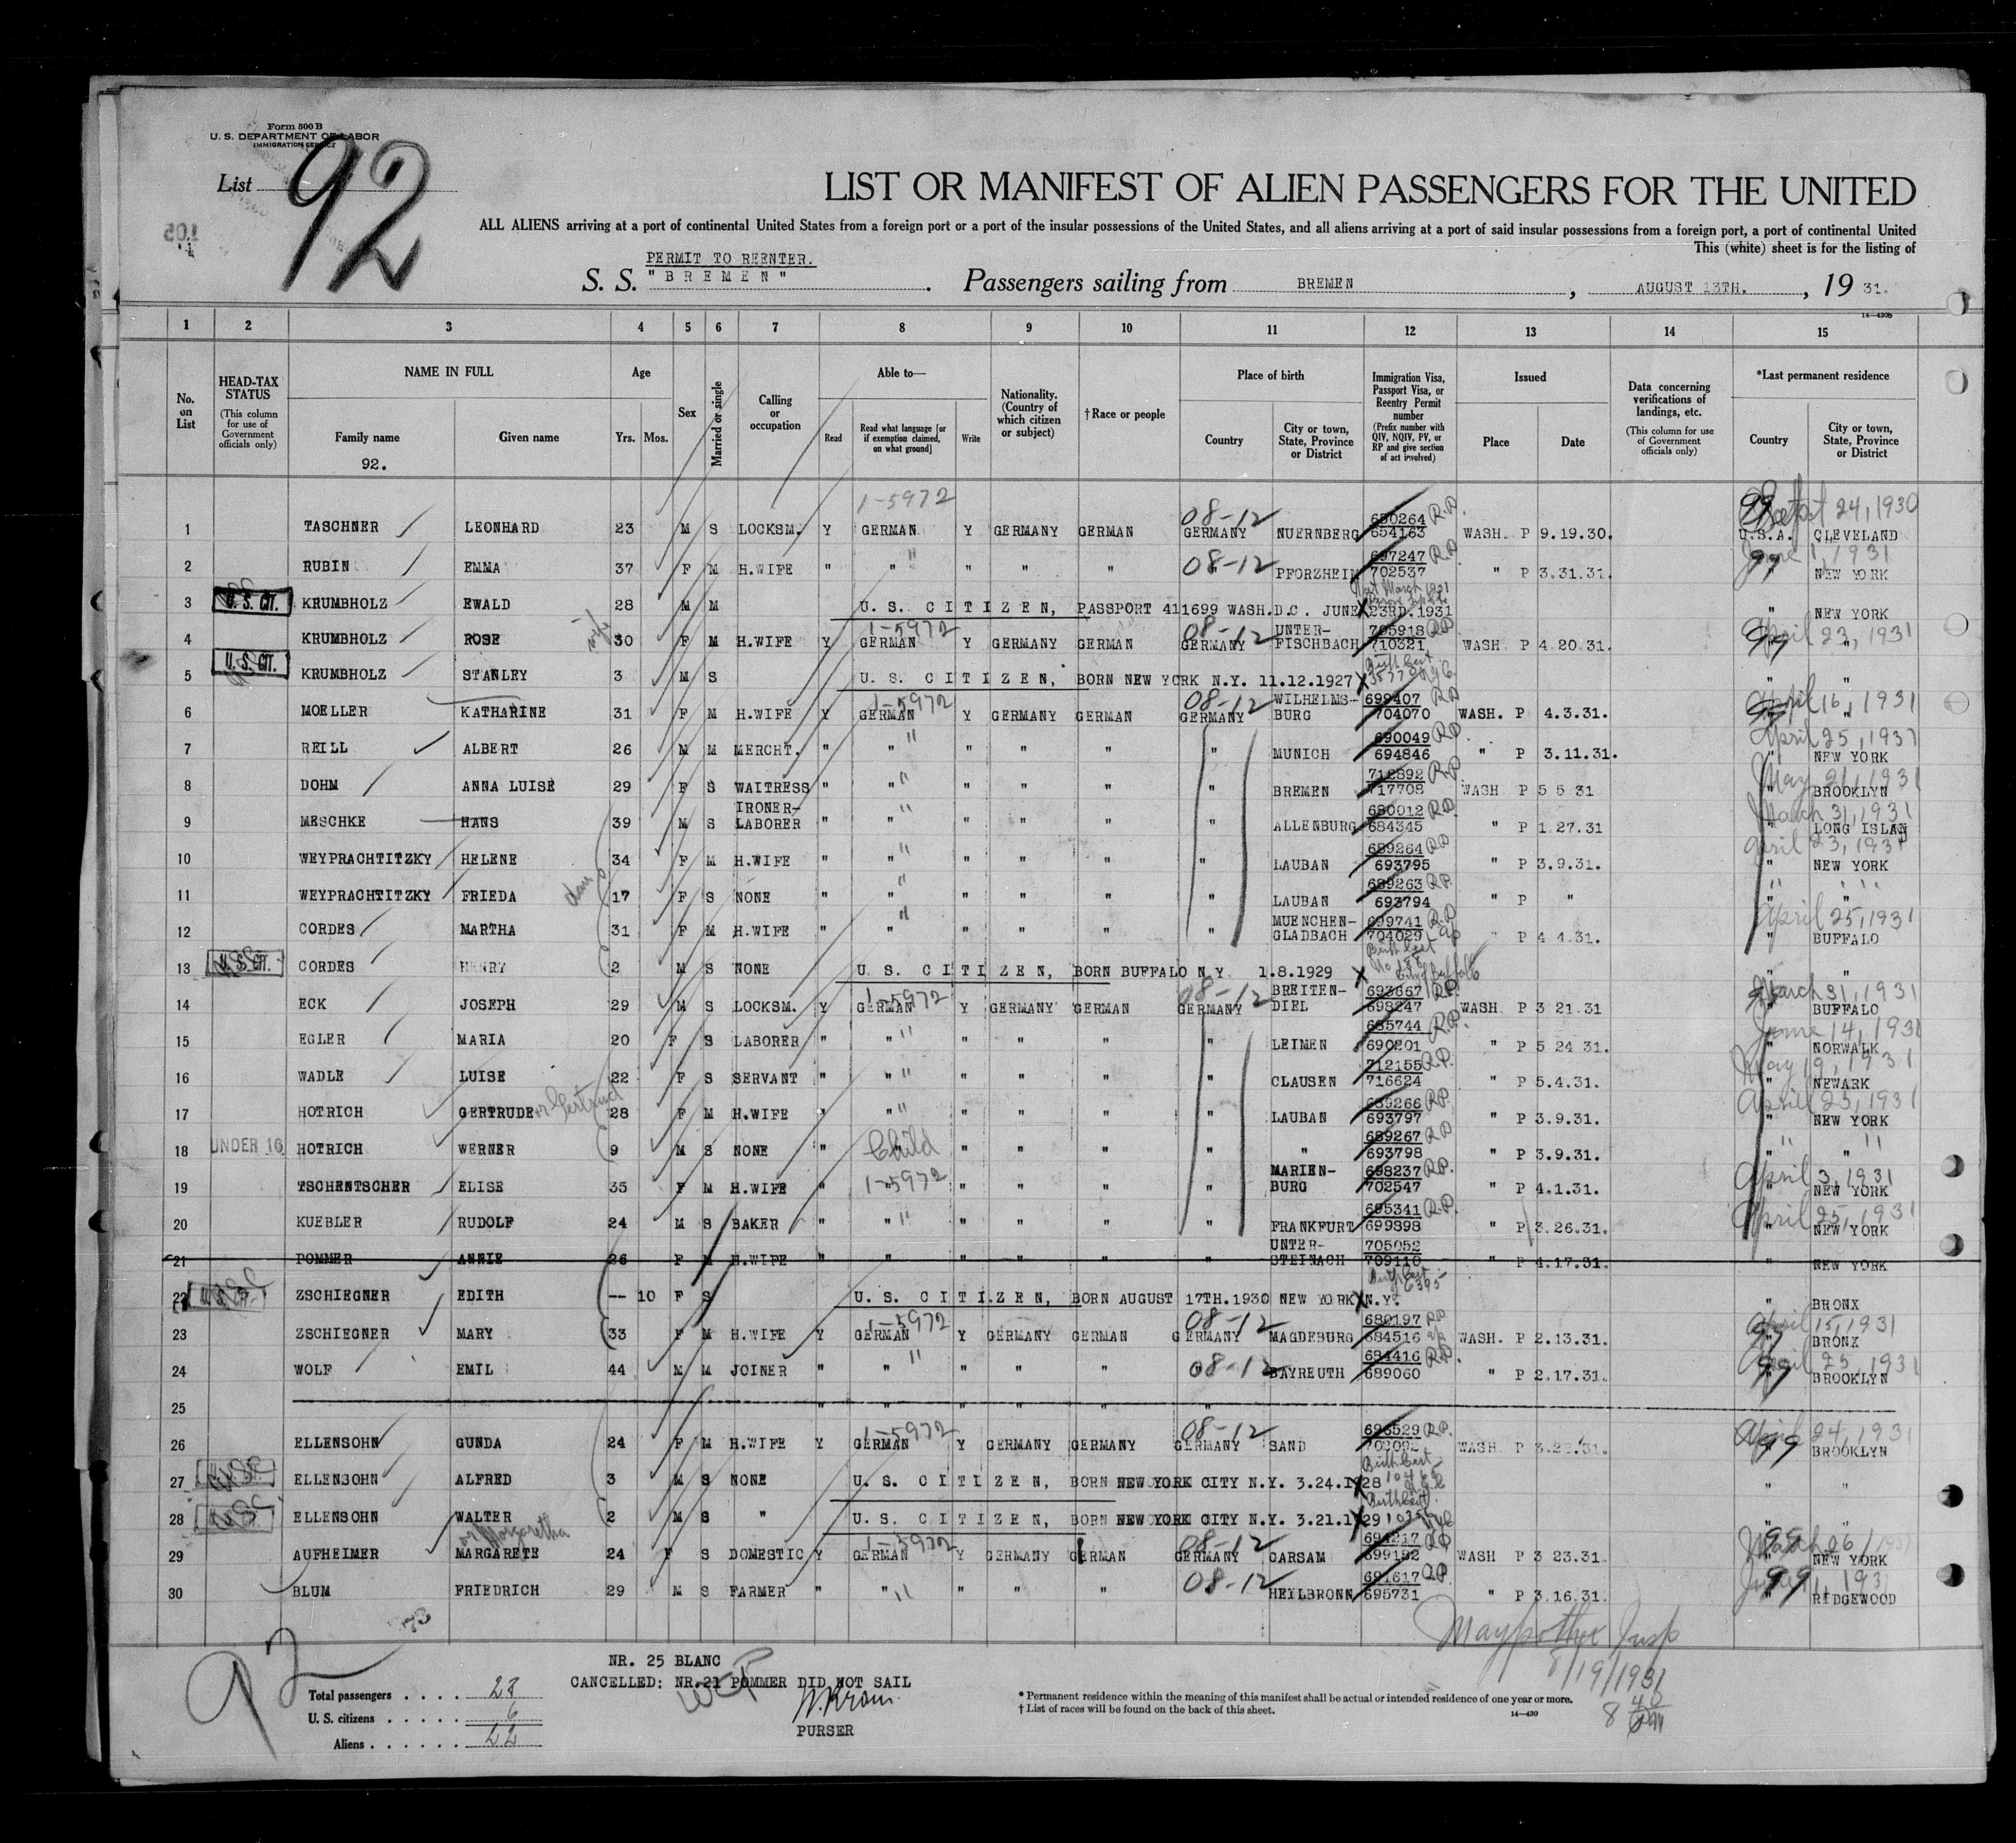 Form 500 B
U. S. DEPARTMENT OF LABOR
IMMIGRATION SERVICE
List 92
105
LIST OR MANIFEST OF ALIEN PASSENGERS FOR THE UNITED
ALL ALIENS arriving at a port of continental United States from a foreign port or a port of the insular possessions of the United States, and all aliens arriving at a port of said insular possessions from a foreign port, a port of continental United
This (white) sheet is for the listing of
PERMIT TO REENTER.
S. S. "BREMEN". Passengers sailing from BREMEN, AUGUST 13TH., 19 31.
14—430b
1 2 3 4 5 6 7 8 9 10 11 12 13 14 15
No. on List
HEAD-TAX STATUS (This column for use of Government officials only)
NAME IN FULL Family name Given name
92.
Age Yrs. Mos.
Sex
Married or single
Calling or occupation
Able to— Read Read what language [or if exemption claimed, on what ground] Write
Nationality. (Country of which citizen or subject)
†Race or people
Place of birth Country City or town, State, Province or District
Immigration Visa, Passport Visa, or Reentry Permit number (Prefix number with QIV, NQIV, PV, or RP and give section of act involved)
Issued Place Date
Data concerning verifications of landings, etc. (This column for use of Government officials only)
*Last permanent residence Country City or town, State, Province or District
1-5972 08-12 650264 R.P. 99 Sept 24, 1930
1 TASCHNER LEONHARD 23 M S LOCKSM. Y GERMAN Y GERMANY GERMAN GERMANY NUERNBERG 654163 WASH. P 9.19.30. U.S.A. CLEVELAND
697247 RP June 1, 1931
2 RUBIN EMMA 37 F M H.WIFE " " " " " 08-12 PFORZHEIM 702537 " P 3.31.31. 99 NEW YORK
3 U.S. CIT. KRUMBHOLZ EWALD 28 M M U. S. CITIZEN, PASSPORT 411699 WASH.D.C. JUNE 23RD.1931 " NEW YORK
wife 1-5972 08-12 UNTER- 705918 RP April 23, 1931
4 KRUMBHOLZ ROSE 30 F M H.WIFE Y GERMAN Y GERMANY GERMAN GERMANY FISCHBACH 710321 WASH P 4 20 31. 99 "
Birth Cert.
5 U.S. CIT. KRUMBHOLZ STANLEY 3 M S U. S. CITIZEN, BORN NEW YORK N.Y. 11.12.1927 " "
1-5972 08-12 WILHELMS- 699407 RP April 16, 1931
6 MOELLER KATHARINE 31 F M H.WIFE Y GERMAN Y GERMANY GERMAN GERMANY BURG 704070 WASH. P 4.3.31. "
690049 RP April 25, 1931
7 REILL ALBERT 26 M M MERCHT. " " " " " " MUNICH 694846 " P 3.11.31. " NEW YORK
712892 RP May 21, 1931
8 DOHM ANNA LUISE 29 F S WAITRESS " " " " " " BREMEN 717708 WASH P 5 5 31 " BROOKLYN
IRONER- 680012 RP. March 31, 1931
9 MESCHKE HANS 39 M S LABORER " " " " " " ALLENBURG 684345 " P 1.27.31 " LONG ISLAND
689264 RP April 23, 1931
10 WEYPRACHTITZKY HELENE 34 F M H.WIFE " " " " " " LAUBAN 693795 " P 3.9.31. " NEW YORK
689263 RP. " "
11 WEYPRACHTITZKY FRIEDA 17 F S NONE " " " " " " LAUBAN 693794 " P " " "
MUENCHEN- 699741 RP April 25, 1931
12 CORDES MARTHA 31 F M H.WIFE " " " " " " GLADBACH 704029 " P 4 4.31. " BUFFALO
Birth Cert
13 U.S. CIT. CORDES HENRY 2 M S NONE U. S. CITIZEN, BORN BUFFALO N Y 1.8.1929 " "
1-5972 08-12 BREITEN- 693667 RP. March 31, 1931
14 ECK JOSEPH 29 M S LOCKSM. Y GERMAN Y GERMANY GERMAN GERMANY DIEL 698247 WASH P 3 21.31 " BUFFALO
685744 R.P. June 14, 1931
15 EGLER MARIA 20 F S LABORER " " " " " " LEIMEN 690201 " P 5 24 31. " NORWALK
712155 RP. May 19, 1931
16 WADLE LUISE 22 F S SERVANT " " " " " " CLAUSEN 716624 " P 5.4.31. " NEWARK
or Gertrud 689266 RP April 23, 1931
17 HOTRICH GERTRUDE 28 F M H.WIFE " " " " " " LAUBAN 693797 " P 3.9.31. " NEW YORK
689267 RP " "
18 UNDER 16 HOTRICH WERNER 9 M S NONE " Child " " " " " 693798 " P 3.9.31. " "
1-5972 MARIEN- 698237 RP. April 3, 1931
19 TSCHENTSCHER ELISE 35 F M H.WIFE " " " " " " BURG 702547 " P 4.1.31. " NEW YORK
695341 R.P. April 25, 1931
20 KUEBLER RUDOLF 24 M S BAKER " " " " " " FRANKFURT 699898 " P 3.26.31. " NEW YORK
UNTER- 705052
21 POMMER ANNIE 26 F M H.WIFE " " " " " " STEINACH 709110 " P 4.17.31. " NEW YORK
Birth Cert. 6395
22 U.S. CIT. ZSCHIEGNER EDITH -- 10 F S U. S. CITIZEN, BORN AUGUST 17TH.1930 NEW YORK N.Y. " BRONX
1-5972 08-12 680197 RP April 15, 1931
23 ZSCHIEGNER MARY 33 F M H.WIFE Y GERMAN Y GERMANY GERMAN GERMANY MAGDEBURG 684516 WASH. P 2.13.31. 99 BRONX
684416 RP. April 25, 1931
24 WOLF EMIL 44 M M JOINER " " " " " 08-12 BAYREUTH 689060 " P 2.17.31. 99 BROOKLYN
25 " " " " " "
1-5972 08-12 698529 RP. April 24, 1931
26 ELLENSOHN GUNDA 24 F M H.WIFE Y GERMAN Y GERMANY GERMANY GERMANY SAND WASH P 99 BROOKLYN
Birth Cert.
27 ELLENSOHN ALFRED 3 M S NONE U. S. CITIZEN, BORN NEW YORK CITY N.Y. 3.24.1928 " "
Birth Cert.
28 ELLENSOHN WALTER 2 M S " U. S. CITIZEN, BORN NEW YORK CITY N.Y. 3.21.1929 " "
or Margaretha 1-5972 08-12 694217 RP March 26, 1931
29 AUFHEIMER MARGARETE 24 F S DOMESTIC Y GERMAN Y GERMANY GERMAN GERMANY CARSAM 699192 WASH P 3 23.31. " NEW YORK
691617 RP. June 1, 1931
30 BLUM FRIEDRICH 29 M S FARMER " " " " " 08-12 HEILBRONN 695731 " P 3.16.31. 99 RIDGEWOOD
Insp
8/19/1931
8 40 PM
92
NR. 25 BLANC
CANCELLED: NR.21 POMMER DID NOT SAIL
PURSER
Total passengers . . . . 28
U. S. citizens . . . . . 6
Aliens . . . . . . 22
* Permanent residence within the meaning of this manifest shall be actual or intended residence of one year or more.
† List of races will be found on the back of this sheet.
14—430